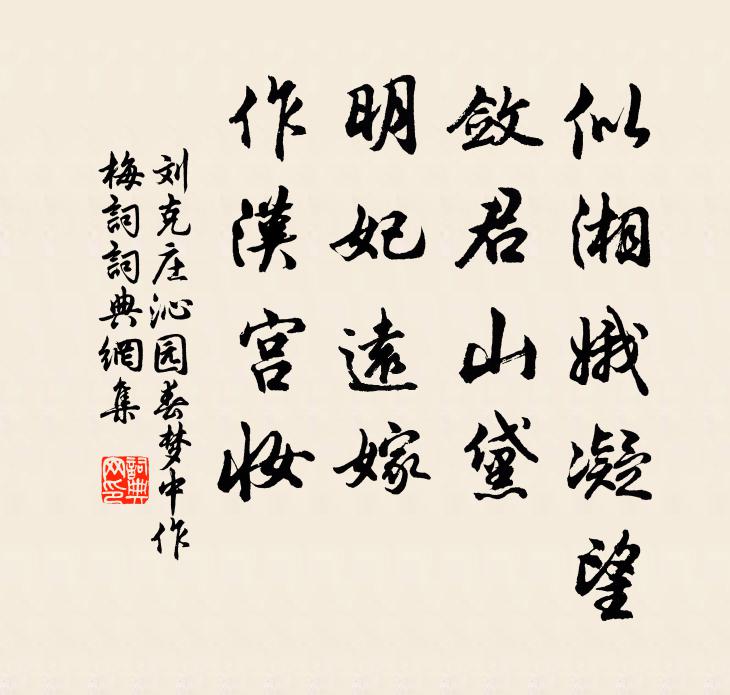 似湘娥凝望
斂君山黛
明妃遠嫁
作漢宮妝
刘克庄沁园春梦中作
梅詞詞典網集
詞典
网印